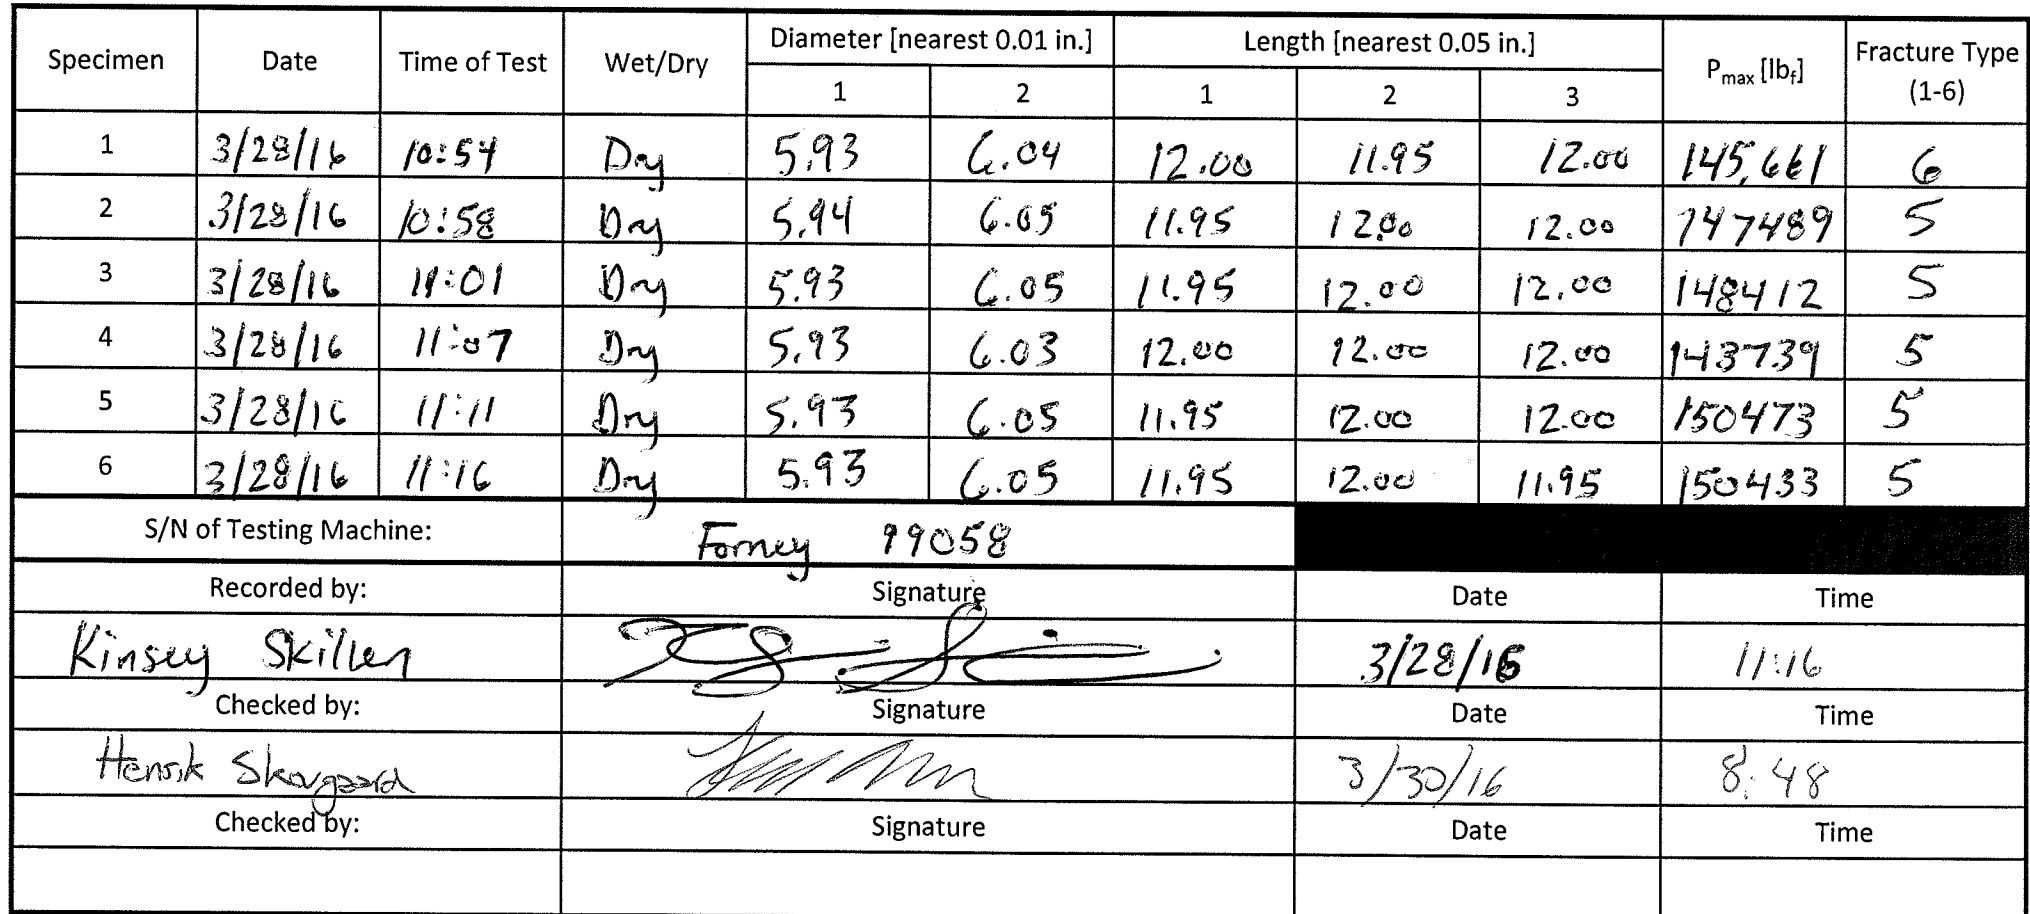 Specimen Date Time of Test Wet/Dry Diameter [nearest 0.01 in.] Length [nearest 0.05 in.] Pmax [lbf] Fracture Type (1-6)
1 2 1 2 3
1 3/28/16 10:54 Dry 5.93 6.04 12.00 11.95 12.00 145,661 6
2 3/28/16 10:58 Dry 5.94 6.05 11.95 12.00 12.00 147489 5
3 3/28/16 11:01 Dry 5.93 6.05 11.95 12.00 12.00 148412 5
4 3/28/16 11:07 Dry 5.93 6.03 12.00 12.00 12.00 143739 5
5 3/28/16 11:11 Dry 5.93 6.05 11.95 12.00 12.00 150473 5
6 3/28/16 11:16 Dry 5.93 6.05 11.95 12.00 11.95 150433 5
S/N of Testing Machine: Forney 99058
Recorded by: Signature Date Time
Kinsey Skillen 3/28/16 11:16
Checked by: Signature Date Time
Henrik Skovgaard 3/30/16 8:48
Checked by: Signature Date Time